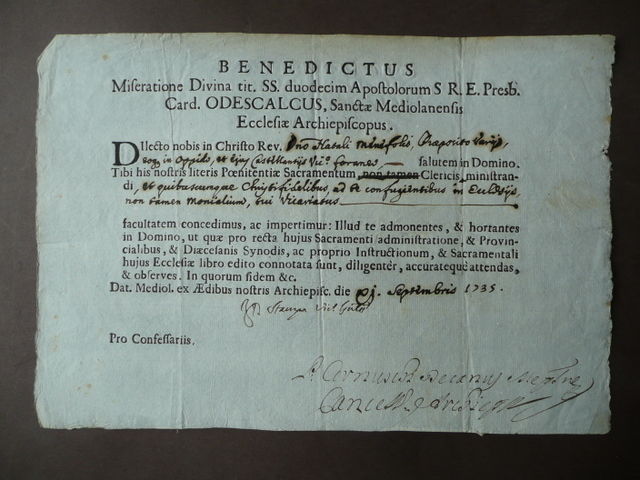 BENEDICTUS
Miseratione Divina tit. SS. duodecim Apostolorum S R. E. Presb.
Card. ODESCALCUS, Sanctæ Mediolanensis
Ecclesiæ Archiepiscopus.
DIlecto nobis in Christo Rev. Dno Natali Præposito
in et foraneo salutem in Domino.
Tibi his nostris literis Pœnitentiæ Sacramentum non tamen Clericis ministran-
di, et quibuscunque Christifidelibus, ad te confugientibus in
non tamen Monialium, tui Vicariatus
facultatem concedimus, ac impertimur: Illud te admonentes, & hortantes
in Domino, ut quæ pro recta hujus Sacramenti administratione, & Provin-
cialibus, & Diœcesanis Synodis, ac proprio Instructionum, & Sacramentali
hujus Ecclesiæ libro edito connotata sunt, diligenter, accurateque attendas,
& observes. In quorum fidem &c.
Dat. Mediol. ex Ædibus nostris Archiepisc. die Septembris 1735.
Stampa Vic. Gñlis
Pro Confessariis.